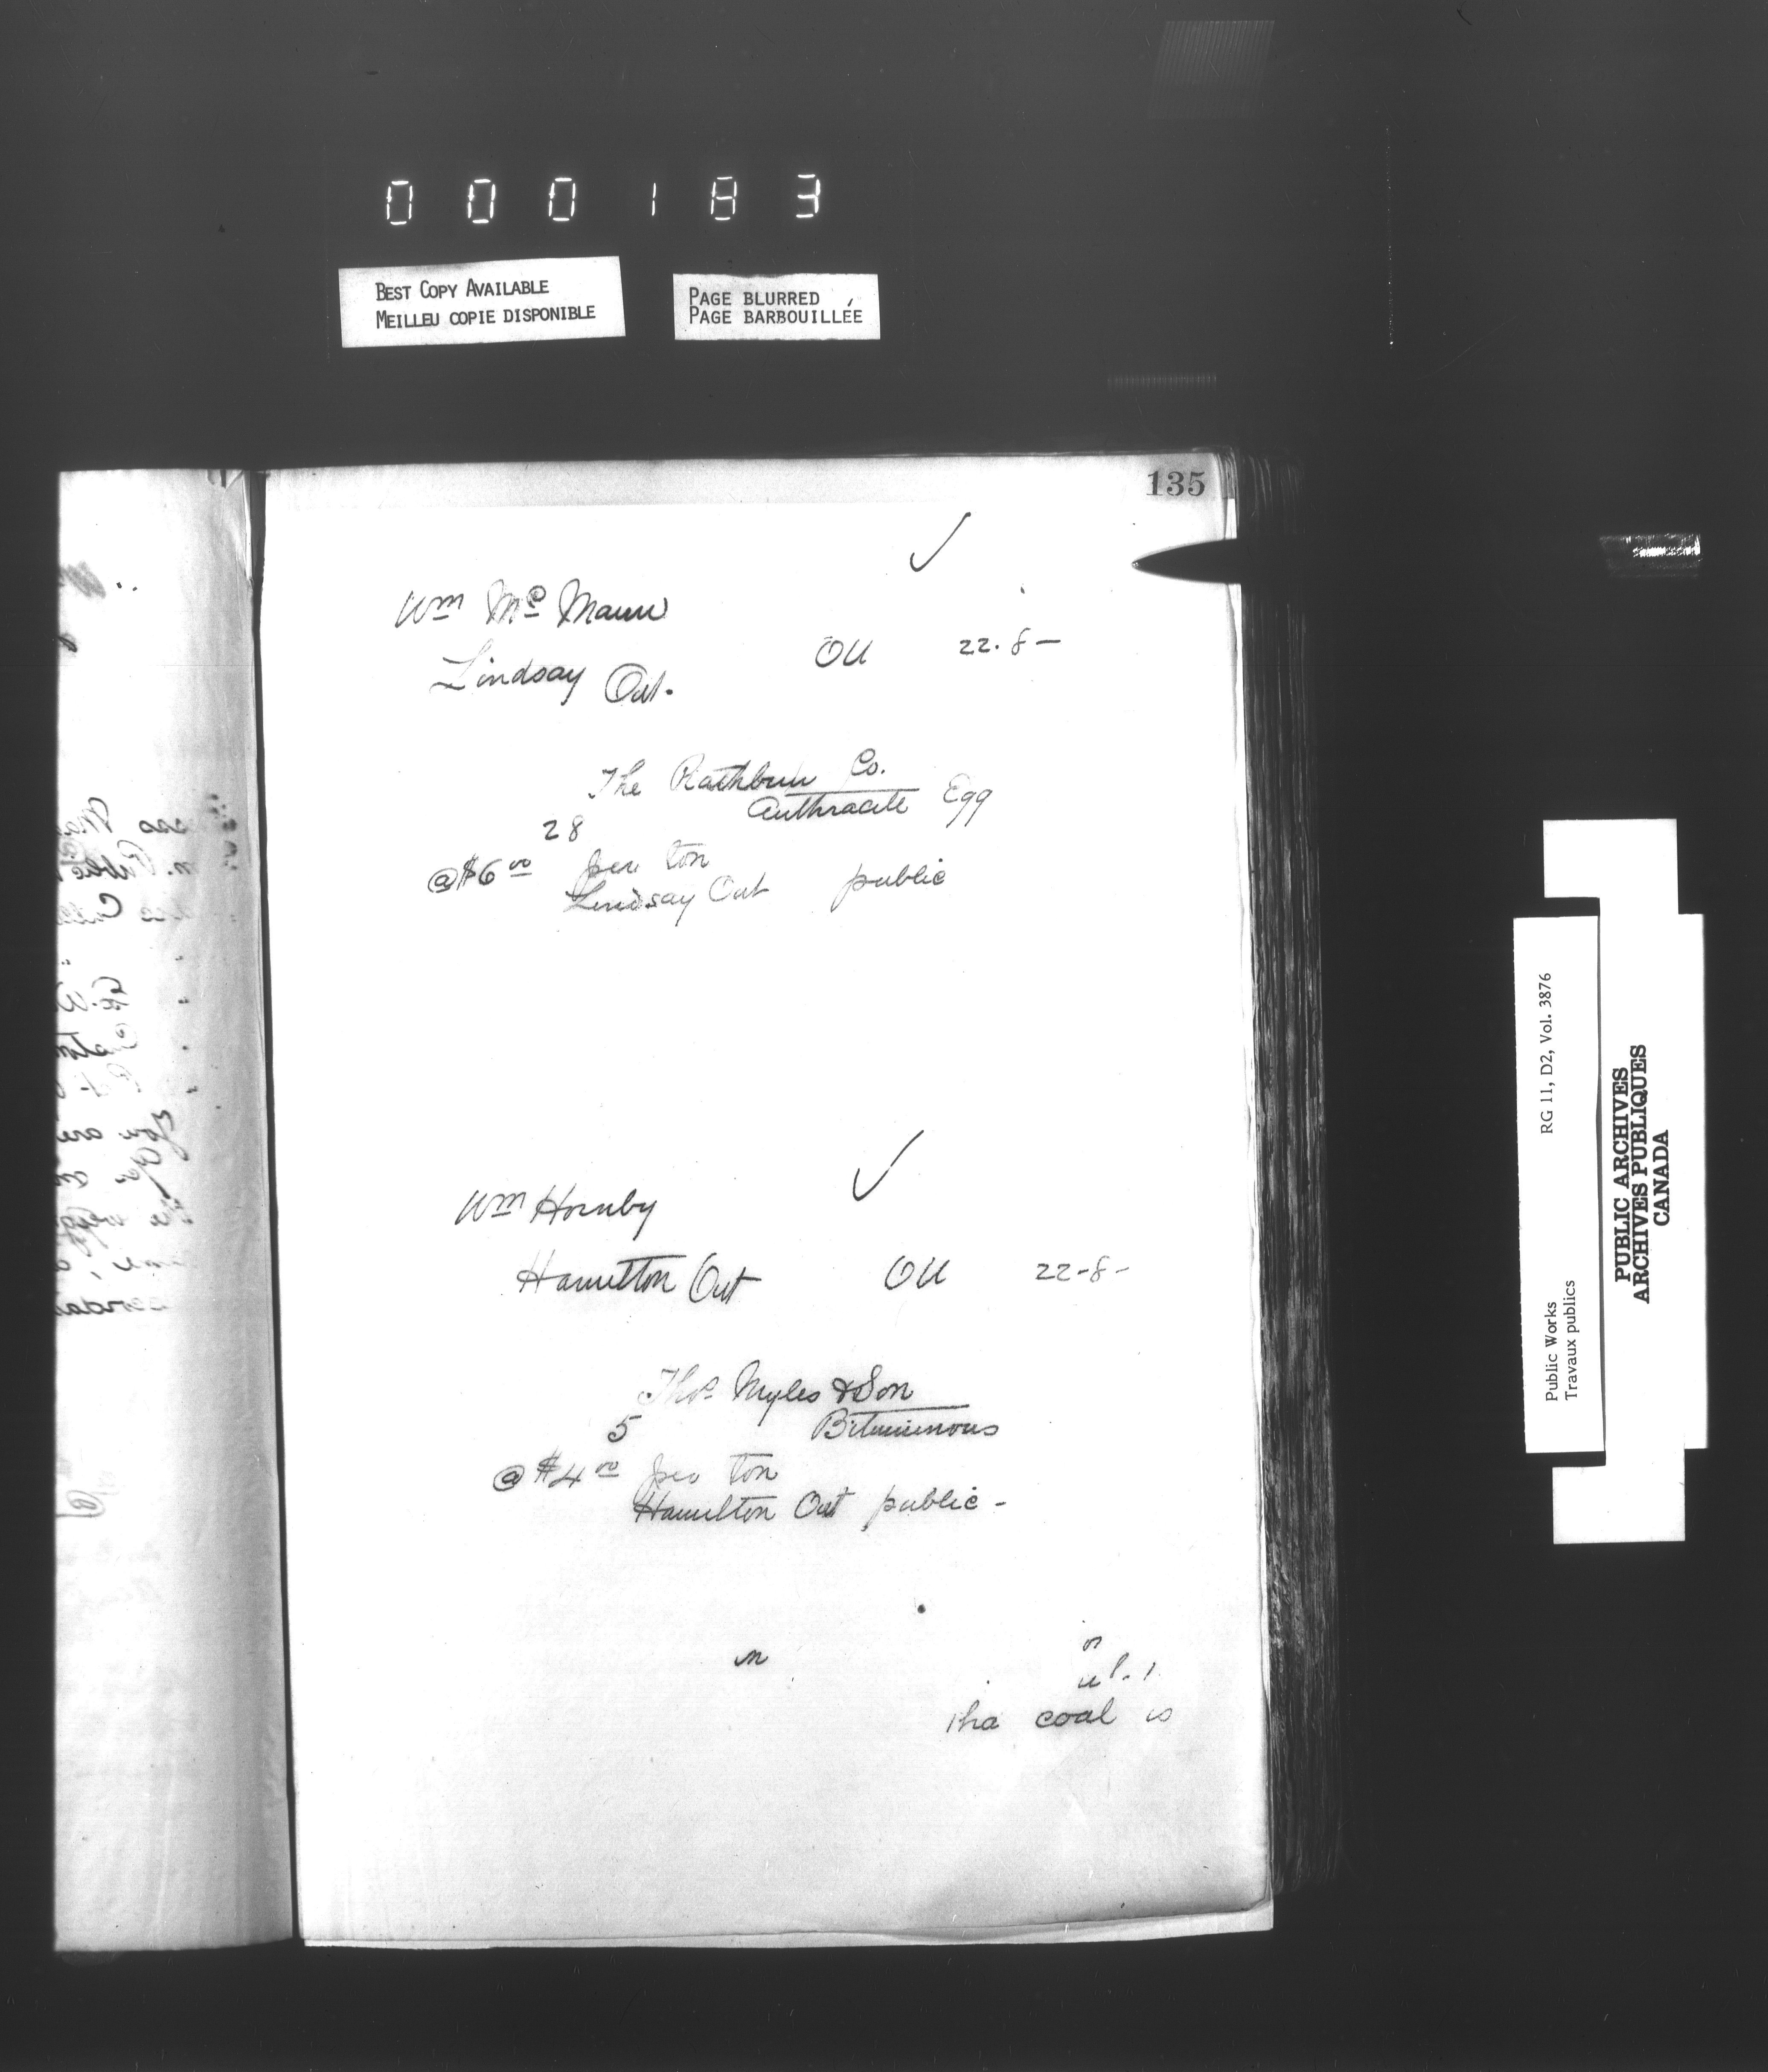 000183
BEST COPY AVAILABLE
MEILLEU COPIE DISPONIBLE
PAGE BLURRED
PAGE BARBOUILLÉE
135
Wm Mc Mann
Lindsay Ont.
OU 22.8—
The Rathbun Co.
Anthracite Egg
28
@ $6 00 per ton
Lindsay Ont public
Wm Hornby
Hamilton Ont OU 22-8-
Thos Myles & Son
5 Bituminous
@ $4 00 per ton
Hamilton Ont public -
coal is
Public Works RG 11, D2, Vol. 3876
Travaux publics
PUBLIC ARCHIVES
ARCHIVES PUBLIQUES
CANADA